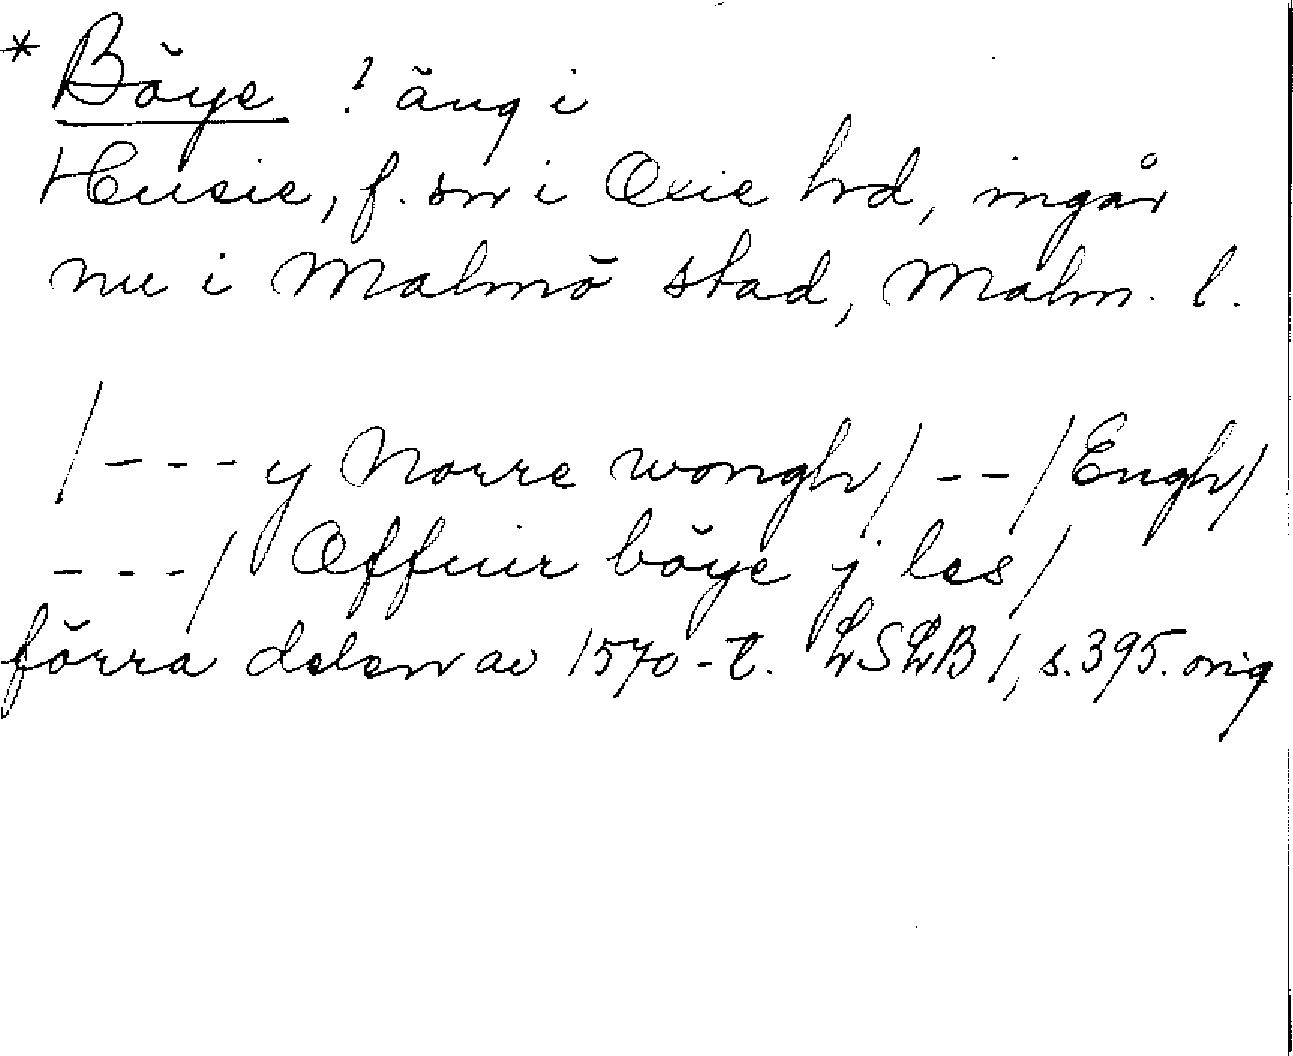 * Böye ? äng i
Husie, f. sn i Oxie hd, ingår
nu i Malmö stad, Malm. l.
/---y Norre wongh/--/Engh/
---/ Offuer böye j les/
förra delen av 1570-t. LSLB 1, s.395. orig